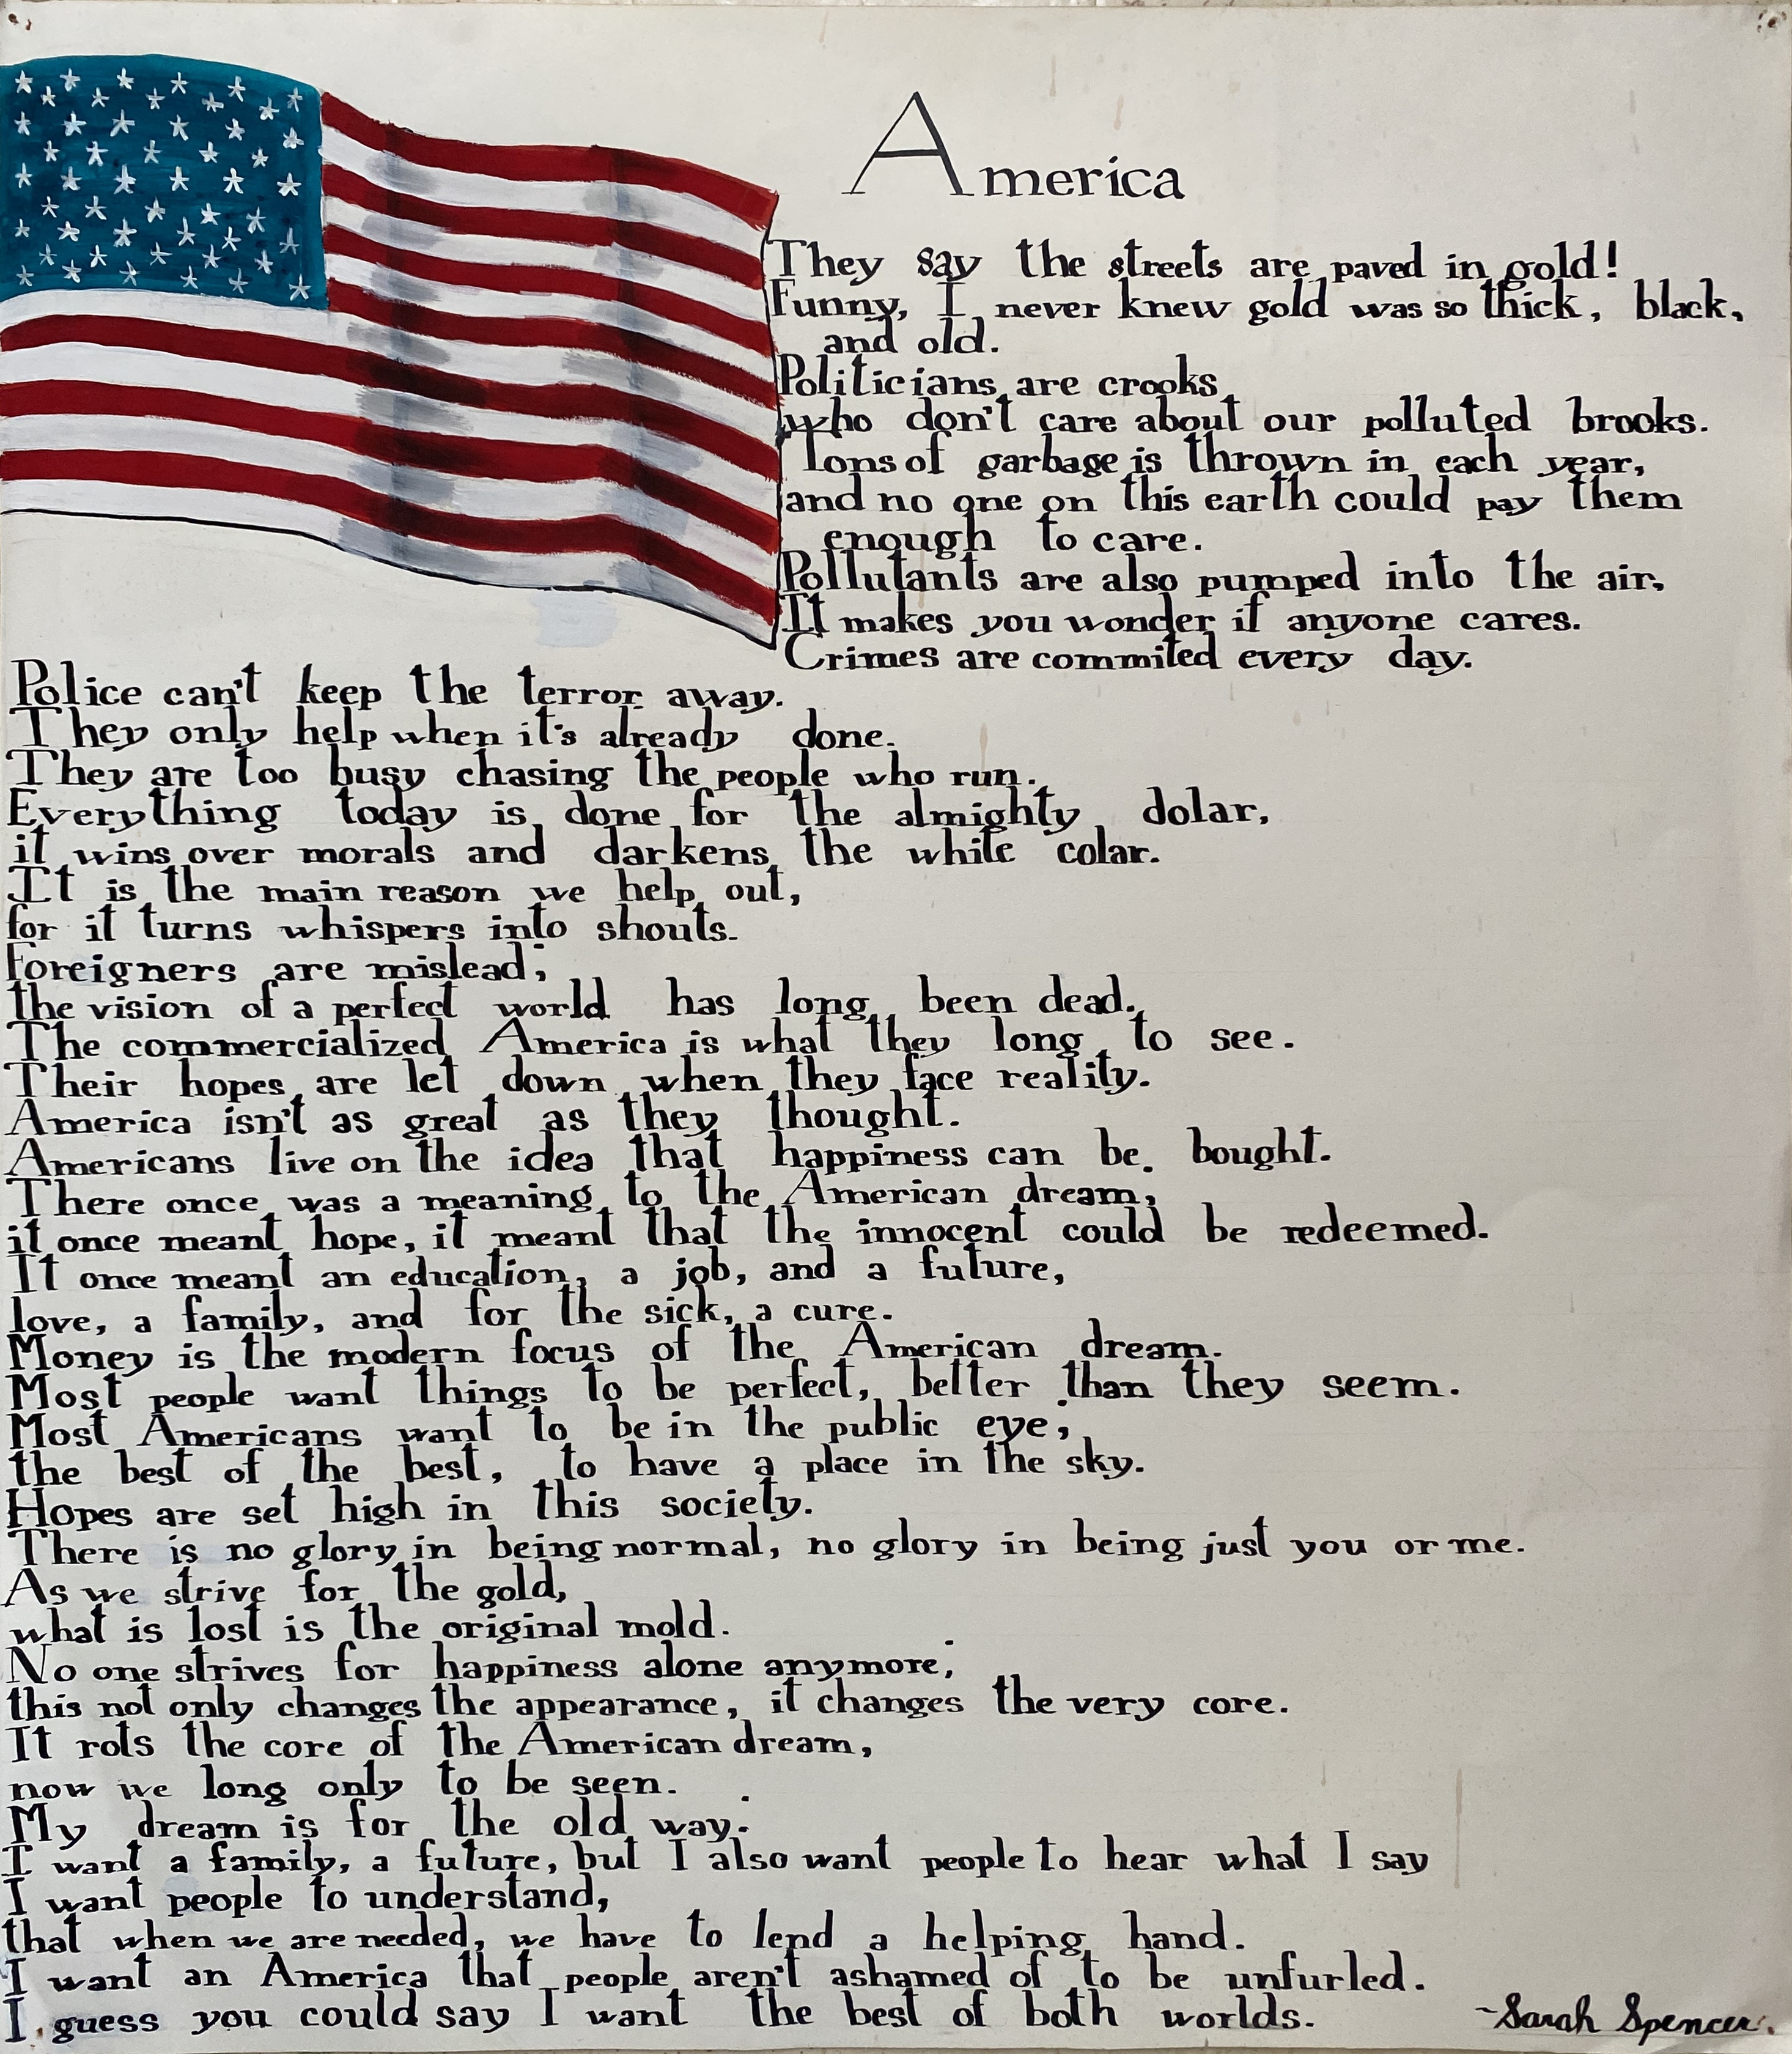 America
They say the streets are paved in gold!
Funny, I never knew gold was so thick, black,
and old.
Politicians are crooks
who don't care about our polluted brooks.
Tons of garbage is thrown in each year,
and no one on this earth could pay them
enough to care.
Pollutants are also pumped into the air,
It makes you wonder if anyone cares.
Crimes are commited every day.
Police can't keep the terror away.
They only help when it's already done.
They are too busy chasing the people who run.
Everything today is done for the almighty dolar,
it wins over morals and darkens the white colar.
It is the main reason we help out,
for it turns whispers into shouts.
Foreigners are mislead;
the vision of a perfect world has long been dead.
The commercialized America is what they long to see.
Their hopes are let down when they face reality.
America isn't as great as they thought.
Americans live on the idea that happiness can be bought.
There once was a meaning to the American dream;
it once meant hope, it meant that the innocent could be redeemed.
It once meant an education, a job, and a future,
love, a family, and for the sick, a cure.
Money is the modern focus of the American dream.
Most people want things to be perfect, better than they seem.
Most Americans want to be in the public eye;
the best of the best, to have a place in the sky.
Hopes are set high in this society.
There is no glory in being normal, no glory in being just you or me.
As we strive for the gold,
what is lost is the original mold.
No one strives for happiness alone anymore;
this not only changes the appearance, it changes the very core.
It rots the core of the American dream,
now we long only to be seen.
My dream is for the old way:
I want a family, a future, but I also want people to hear what I say
I want people to understand,
that when we are needed, we have to lend a helping hand.
I want an America that people aren't ashamed of to be unfurled.
I guess you could say I want the best of both worlds.
~Sarah Spencer.